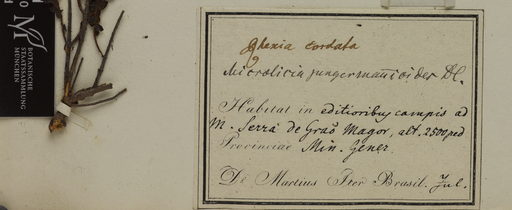 cordata
Microlicia jungermannioides DC.
Habitat in editioribus campis ad
M. Serra de Graõ Magor, alt. 2500 ped
Provinciae Min. Gener.
Dr Martius Iter Brasil. Jul.
M
BOTANISCHE
STAATSSAMMLUNG
MÜNCHEN